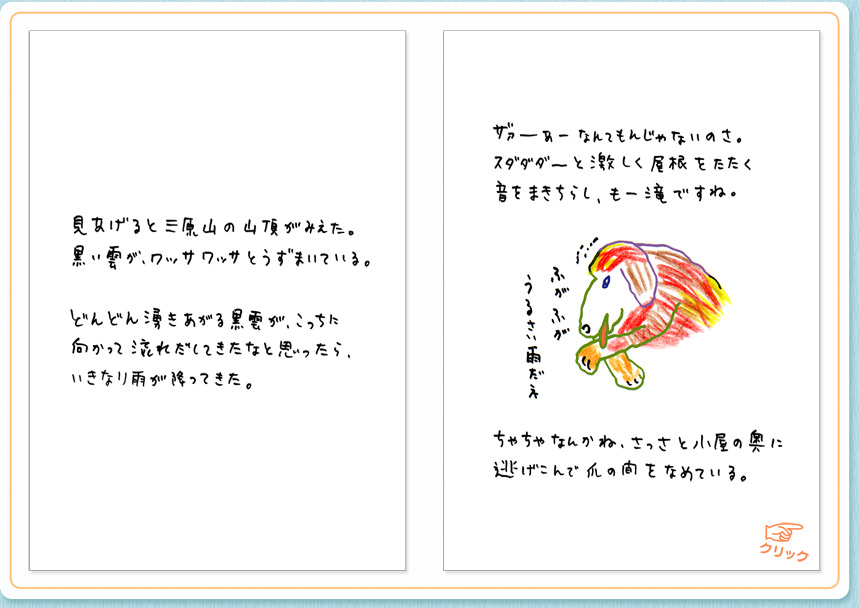 見あげると三原山の山頂がみえた。
黒い雲が、ワッサワッサとうずまいている。
どんどん湧きあがる黒雲が、こっちに
向かって流れだしてきたなと思ったら、
いきなり雨が降ってきた。
ザァーあーなんてもんじゃないのさ。
スダダダーと激しく屋根をたたく
音をまきちらし、も一滝ですね。
ふがふが
うるさい雨だえ
ちゃちゃなんかね、さっさと小屋の奥に
逃げこんで爪の間をなめている。
クリック